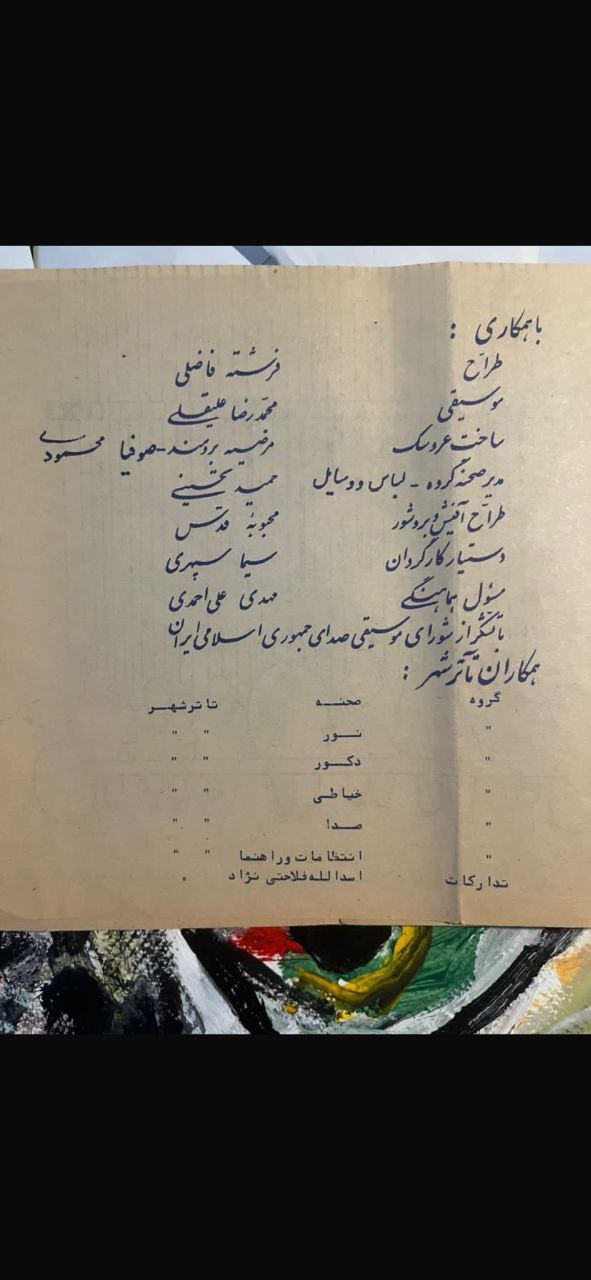 با همکاری :
طراح فرشته فاضلی
موسیقی محمدرضا علیقلی
ساخت عروسک مرضیه برومند - صوفیا محمودی
مدیر صحنه گروه - لباس و وسایل حمید تحسینی
طراح آفیش و بروشور محبوبهٔ قدس
دستیار کارگردان سیما سپهری
مسئول هماهنگی مهدی علی احمدی
با تشکر از شورای موسیقی صدای جمهوری اسلامی ایران
همکاران تآتر شهر :
گروه صحنه تاترشهر
" نور " "
" دکور " "
" خیاطی " "
" صدا " "
" انتظامات وراهنما " "
تدارکات اسدالله فلاحتی نژاد "